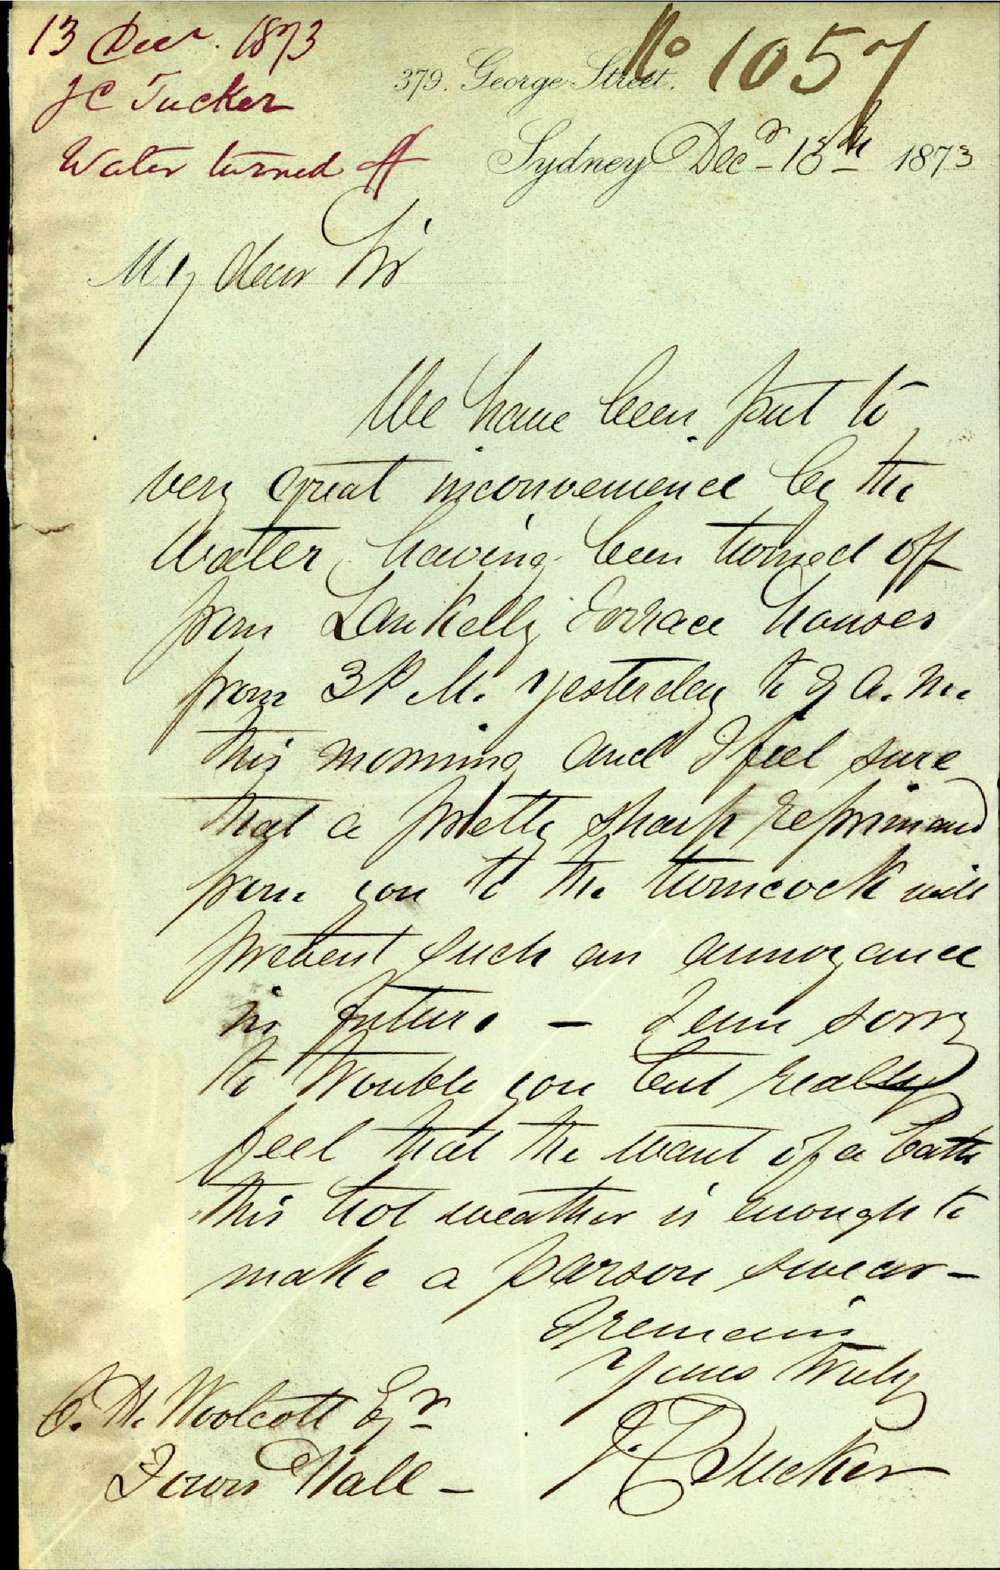 13 Decr. 1873
J C Tucker
Water turned off
No 1057
379. George Street.
Sydney Decr 13th 1873
My dear Sir
We have been put to
very great inconvenience by the
Water having been turned off
from Lankelly Terrace houses
from 3 P.M. yesterday to 9 a.m.
this morning and I feel sure
that a pretty sharp reprimand
from you to the turncock will
prevent such an annoyance
in future. — I am sorry
to trouble you but really
feel that the want of a bath
this hot weather is enough to
make a parson swear —
I remain
Yours truly
J C Tucker
C. H. Woolcott Esqr
Town Hall —